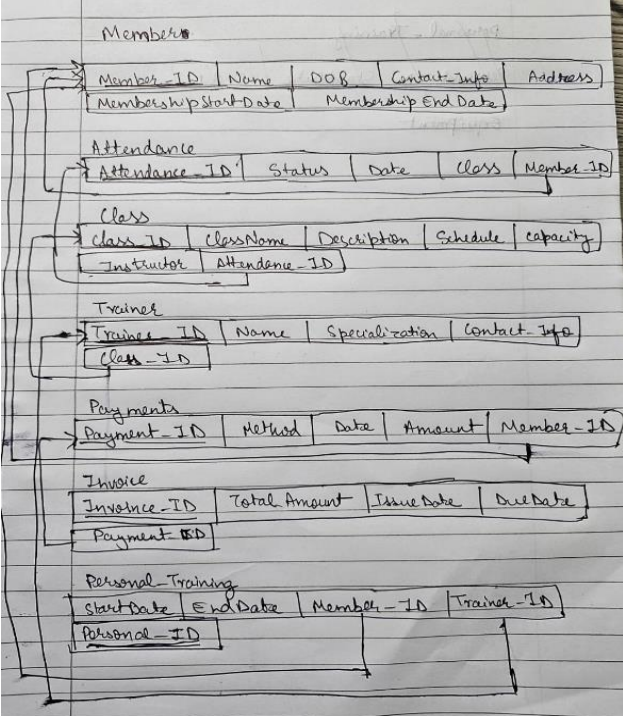 Member
Member_ID Name DOB Contact_Info Address
MembershipStartDate Membership End Date
Attendance
Attendance_ID Status Date Class Member_ID
Class
Class_ID ClassName Description Schedule capacity
Instructor Attendance_ID
Trainer
Trainer_ID Name Specialization Contact_Info
Class_ID
Payments
Payment_ID Method Date Amount Member_ID
Invoice
Invoince_ID Total Amount Issue Date Due Date
Payment ID
Personal_Training
Start Date End Date Member_ID Trainer_ID
Personal_ID